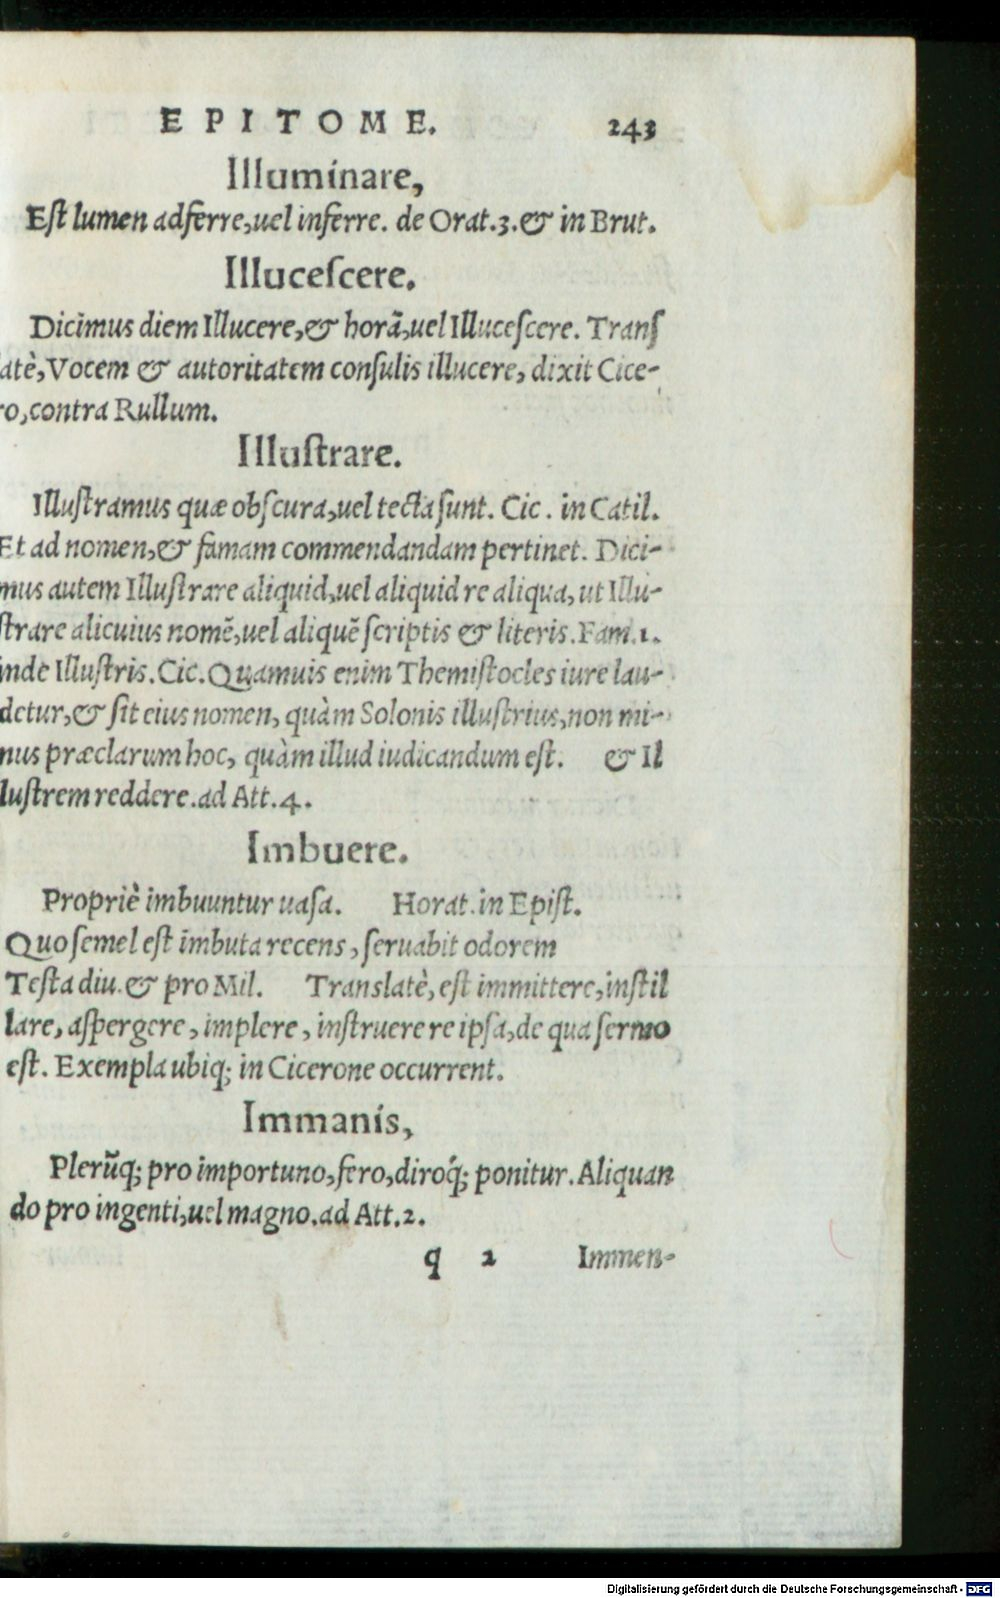 EPITOME. 243
Illuminare,
Est lumen adferre, uel inferre. de Orat.3.& in Brut.
Illucescere.
Dicimus diem Illucere,& horā, uel Illucescere. Trans
latè, Vocem & autoritatem consulis illucere, dixit Cice-
ro, contra Rullum.
Illustrare.
Illustramus quæ obscura, uel tecta sunt. Cic. in Catil.
Et ad nomen,& famam commendandam pertinet. Dici-
mus autem Illustrare aliquid, uel aliquid re aliqua, ut Illu-
strare alicuius nomē, uel aliquē scriptis & literis. Fam.1.
inde Illustris. Cic. Quamuis enim Themistocles iure lau-
detur,& sit eius nomen, quàm Solonis illustrius, non mi-
nus præclarum hoc, quàm illud iudicandum est. & Il
lustrem reddere. ad Att.4.
Imbuere.
Propriè imbuuntur uasa. Horat. in Epist.
Quo semel est imbuta recens, seruabit odorem
Testa diu. & pro Mil. Translatè, est immittere, instil
lare, aspergere, implere, instruere re ipsa, de qua sermo
est. Exempla ubiq; in Cicerone occurrent.
Immanis,
Plerūq; pro importuno, fero, diroq́; ponitur. Aliquan
do pro ingenti, uel magno. ad Att.2.
q 2 Immen-
Digitalisierung gefördert durch die Deutsche Forschungsgemeinschaft - DFG